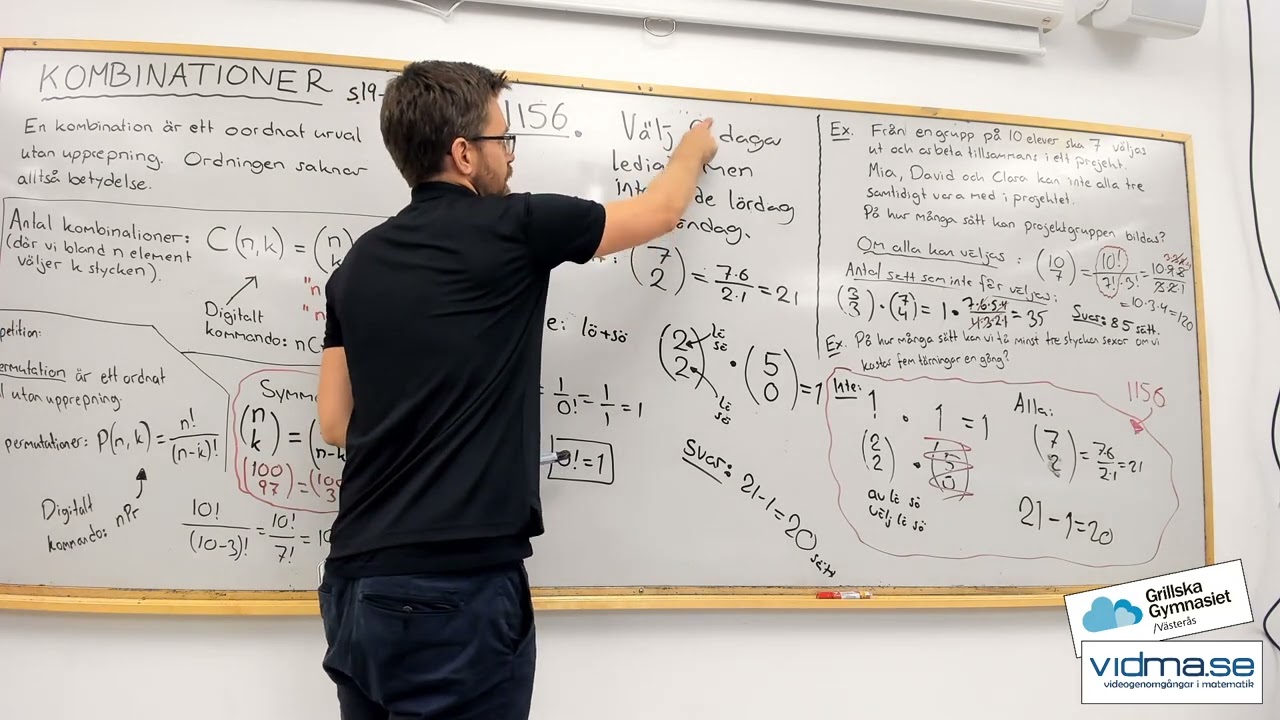 KOMBINATIONER s.19-
En kombination är ett oordnat urval
utan upprepning. Ordningen saknar
alltså betydelse.
Antal kombinationer:
(där vi bland n element
väljer k stycken).
C(n,k) = (n k)
Digitalt
kommando: nC
petition:
ermutation är ett ordnat
l utan upprepning:
permutationer: P(n,k) = n!/(n-k)!
Digitalt
kommando: nPr
10!/(10-3)! = 10!/7! = 10
Symm
(n k) = (n-k
(100 97) = (100 3
1156.
Välj dagar
ledig men
inte de lördag
öndag.
(7 2) = 7·6/2·1 = 21
e: lö+sö
= 1/0! = 1/1 = 1
0! = 1
(2 2) · (5 0) = 1
lö
sö
lö
sö
Svar: 21-1=20 sätt
Ex. Från en grupp på 10 elever ska 7 väljas
ut och arbeta tillsammans i ett projekt.
Mia, David och Clara kan inte alla tre
samtidigt vara med i projektet.
På hur många sätt kan projektgruppen bildas?
Om alla kan väljas: (10 7) = 10!/7!·3! = 10·9·8/3·2·1
= 10·3·4 = 120
Antal sätt som inte får väljas:
(3 3)·(7 4) = 1 · 7·6·5·4/4·3·2·1 = 35
Svar: 85 sätt.
Ex. På hur många sätt kan vi få minst tre stycken sexor om vi
kastar fem tärningar en gång?
1156
Inte:
1 · 1 = 1
(2 2) · (5 0)
av lö sö
välj lö sö
Alla:
(7 2) = 7·6/2·1 = 21
21-1=20
Grillska
Gymnasiet
/Västerås
vidma.se
videogenomgångar i matematik